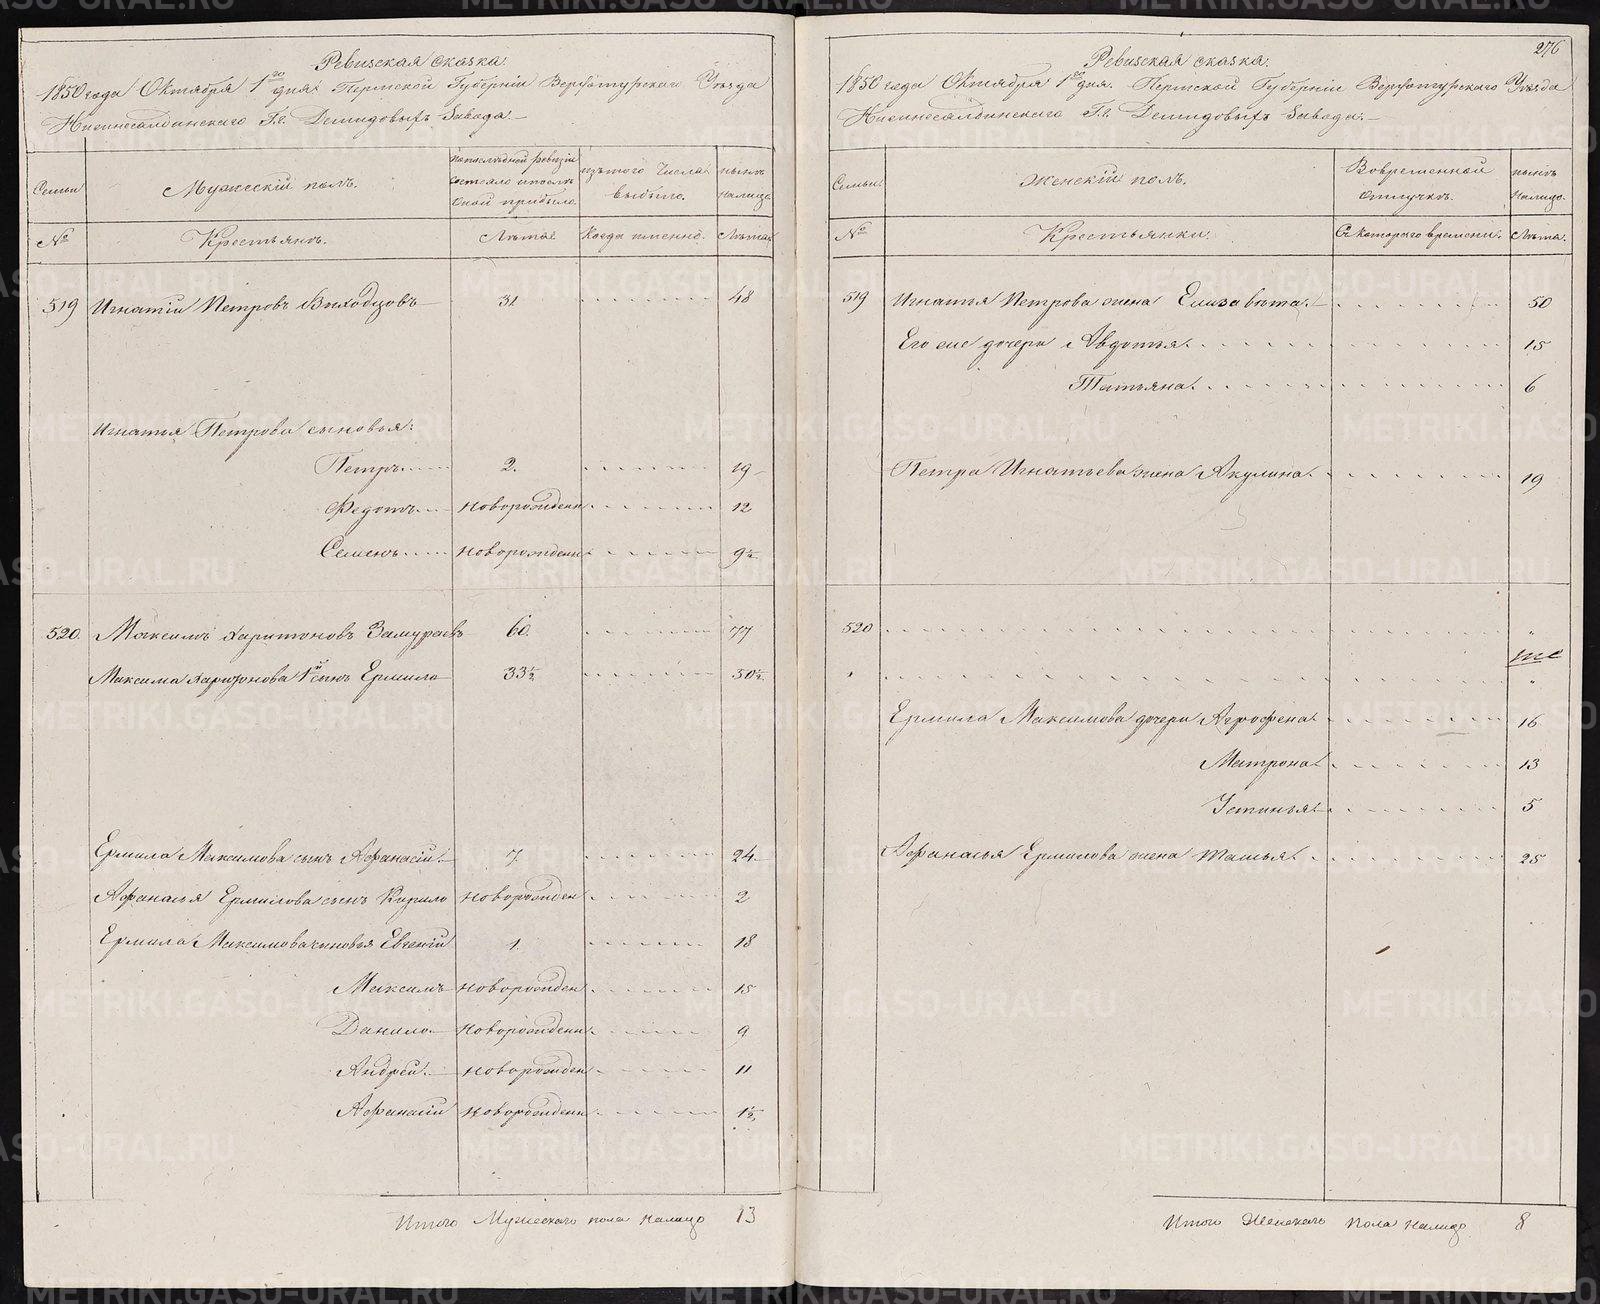 Ревизская сказка
1850 года Октября 1го дня Пермской Губерніи Верхотурскаго Уѣзда
Нижнесалдинскаго Г.г. Демидовыхъ Завода.
Семьи
Мужескій полъ.
По послѣдней ревизіи состояло и послѣ оной прибыло.
изъ того числа выбыло.
нынѣ налицо.
№
Крестьянъ.
Лѣта.
Когда именно.
Лѣта.
519 Игнатій Петровъ Выходцовъ 31 48
Игнатья Петрова сыновья:
Петръ 2. 19
Федотъ новорожден 12
Семенъ новорожденъ 9½
520. Максимъ Харитоновъ Замураевъ 60. 77
Максима Харитонова 1й сынъ Ермило 33½ 50½
Ермила Максимова сынъ Афанасій 7. 24
Афанасья Ермилова сынъ Кирило новорожден 2
Ермила Максимова сыновья Евгеній 1. 18
Максимъ новорожден 15
Данило новорожден 9
Андрей новорожден 11
Афанасій новорожден 1½
Итого Мужескаго пола налицо 13
276
Ревизская сказка.
1850 года Октября 1го дня. Пермской Губерніи Верхотурскаго Уѣзда
Нижнесалдинскаго Г.г. Демидовыхъ Завода.
Семьи.
Женскій полъ.
Во временной отлучкѣ.
нынѣ налицо.
№
Крестьянки.
Съ котораго времени.
Лѣта.
519 Игнатья Петрова жена Елизавета 50
Его же дочери Авдотья 15
Татьяна 6
Петра Игнатьева жена Акулина 19
520
Ермила Максимова дочери Агрофена 16
Матрона 13
Устинья 5
Афанасья Ермилова жена 25
Итого Женскаго пола налицо 8
METRIKI.GASO-URAL.RU